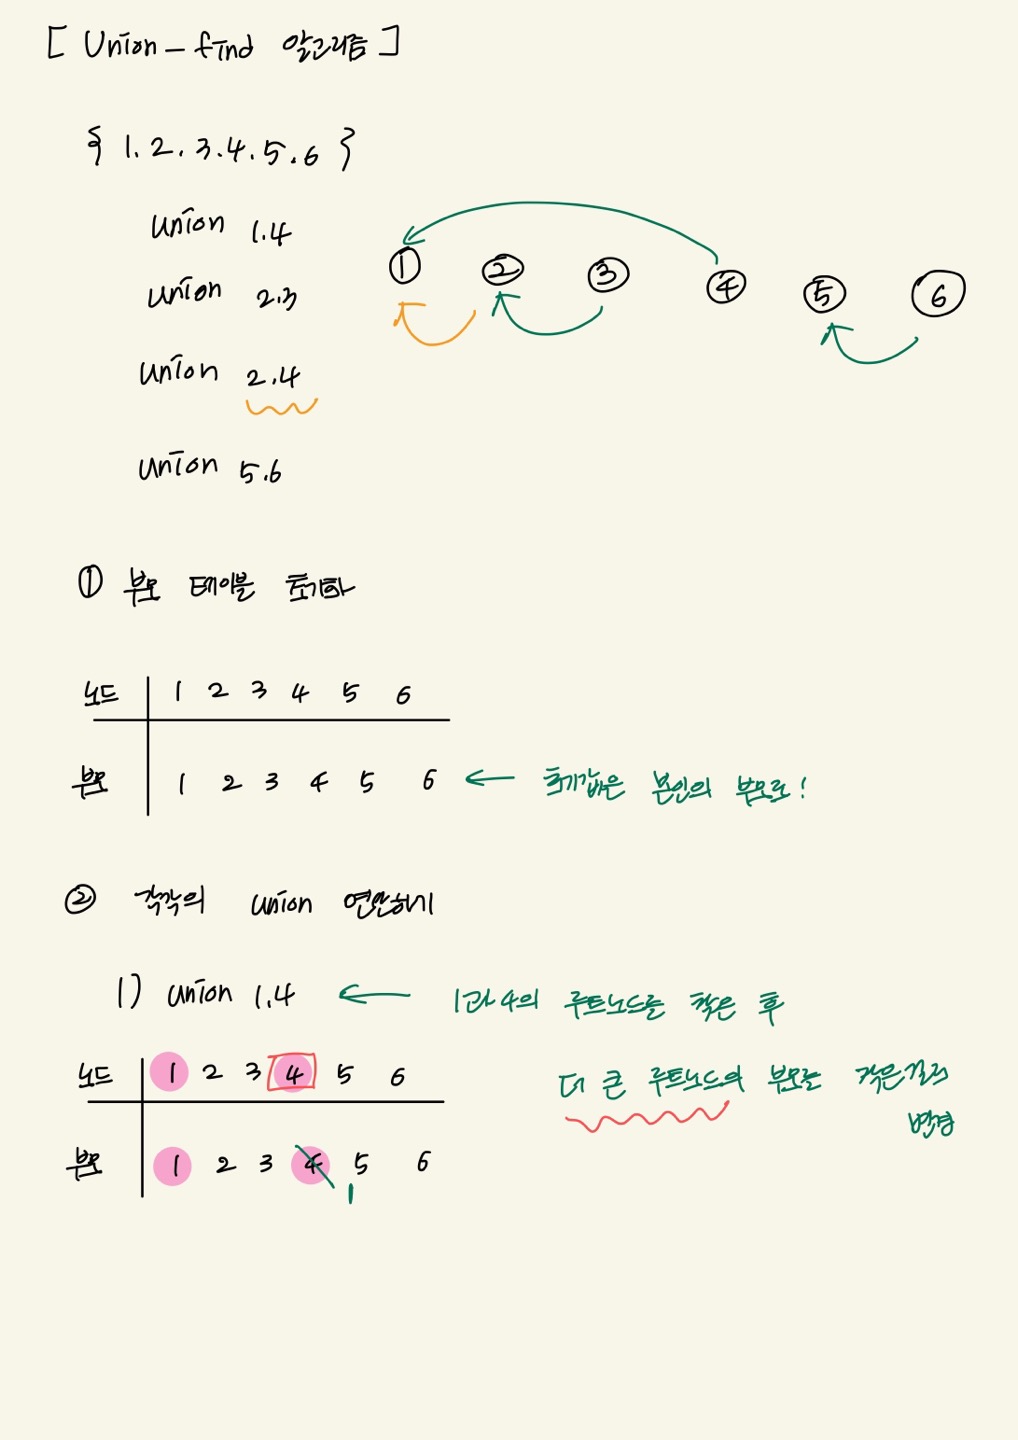 [ Union - find 알고리즘 ]
{ 1. 2. 3. 4. 5. 6 }
Union 1.4
Union 2.3
Union 2.4
Union 5.6
① ② ③ ④ ⑤ ⑥
① 부모 테이블 초기화
노드 1 2 3 4 5 6
부모 1 2 3 4 5 6 ← 초기값은 본인의 부모로!
② 각각의 union 연산하기
1) union 1.4 ← 1과 4의 루트노드를 찾은 후
더 큰 루트노드의 부모를 작은걸로
변경
노드 1 2 3 4 5 6
부모 1 2 3 4 5 6
1